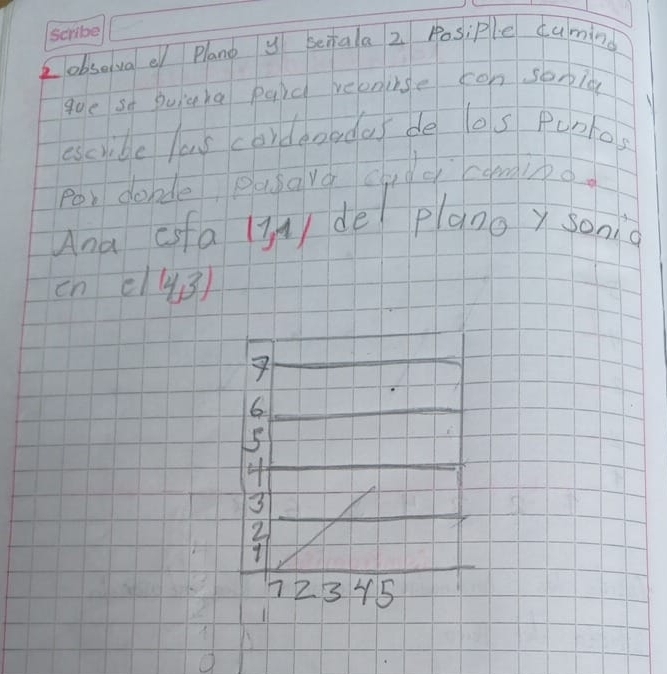 scribe
2 observa el Plano y señala 2 Posiple camino
que se guiara para reunirse con sonia
escribe las cordenadas de los Puntos
Por donde pasara cada camino.
Ana esta (1,1) del plano y sonia
en el (4,3)
7
6
5
4
3
2
1
1 2 3 4 5